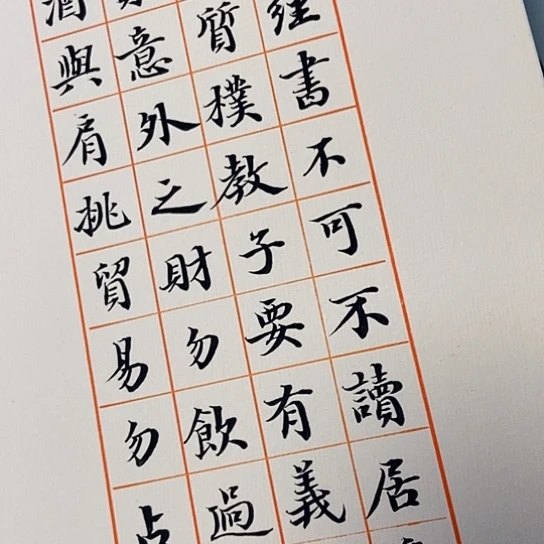 經書不可不讀居
質樸教子要有義
意外之財勿飲過
酒與肩挑貿易勿占